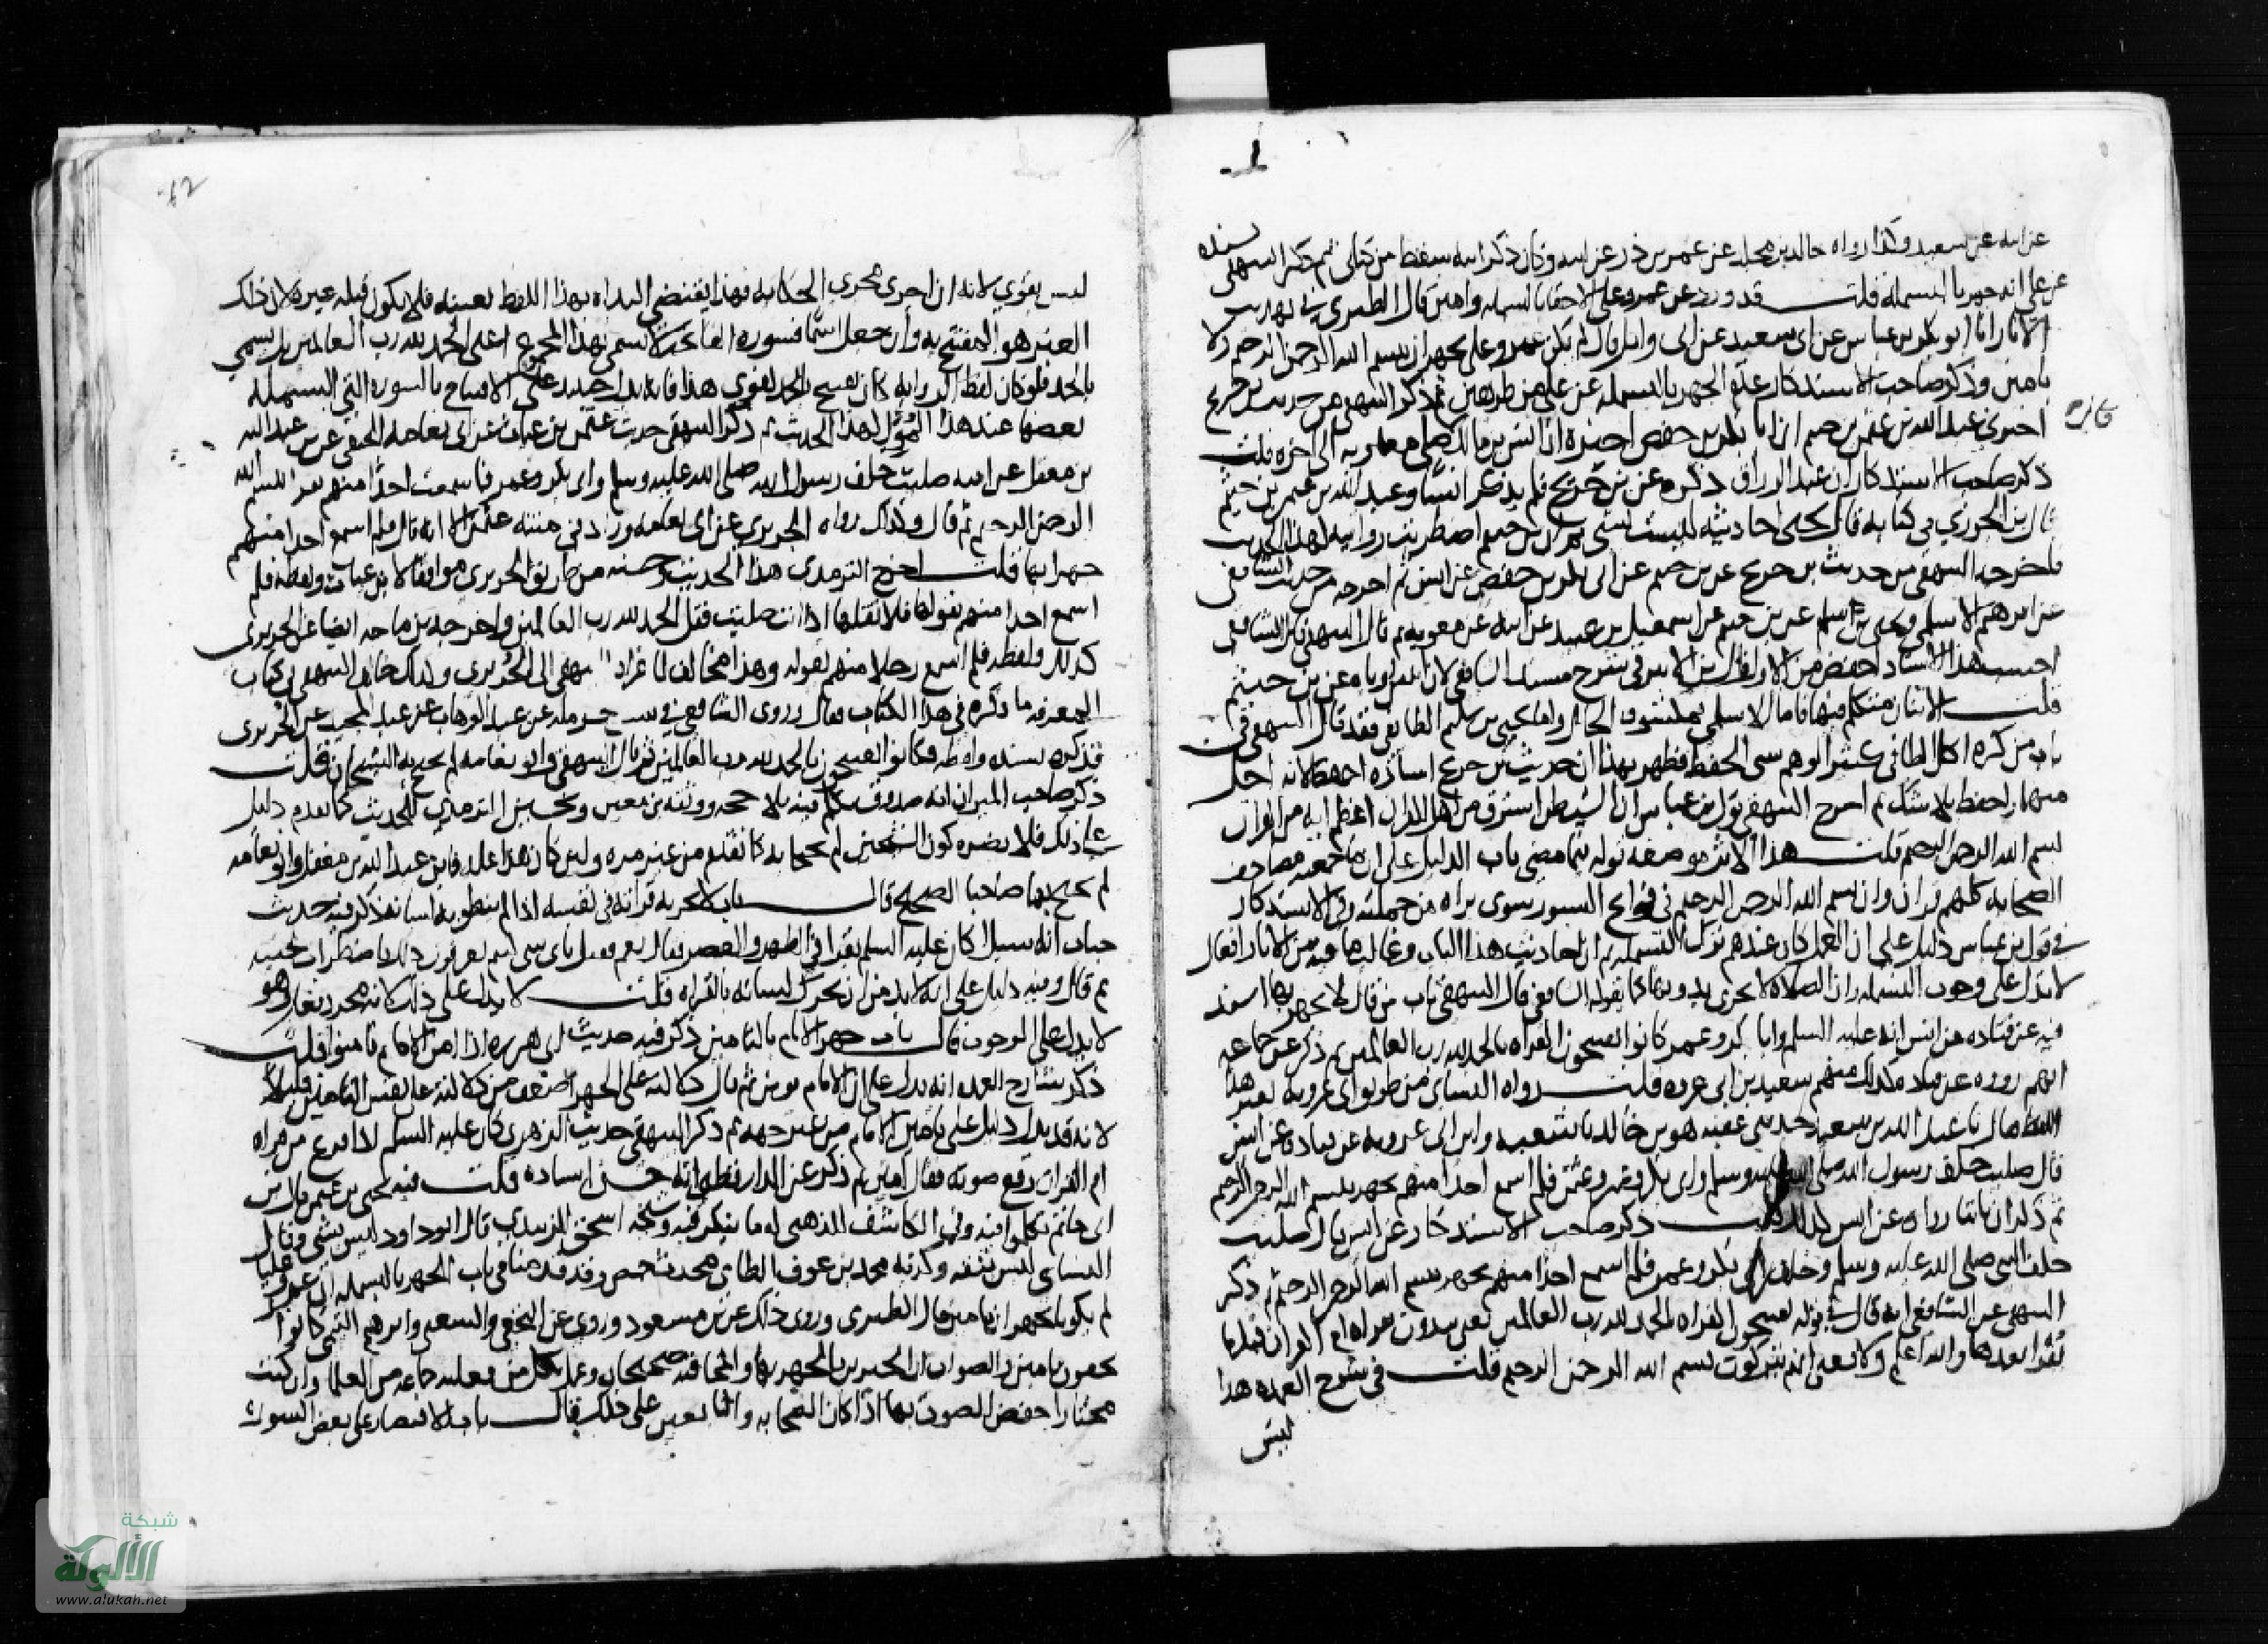 عن ابيه عن سعيد وكذا رواه خالد بن مخلد عن عمر بن ذر عن ابيه وكان ذكر ابيه سقط من كتابي ثم ذكر البيهقي بسنده
عن علي انه جهر بالبسملة قلت قد ورد عن عمر وعلي الاخفاء بالبسملة وامين قال الطبري في تهذيب
الاثار انا ابو بكر بن عياش عن ابي سعيد عن ابي وايل قال لم يكن عمر وعلي يجهران ببسم الله الرحمن الرحيم ولا
بامين وذكر صاحب الاستذكار الجهر بالبسملة عن علي من طرفين ثم ذكر البيهقي من حديث بن جريج
اخبرني عبد الله بن عثمن بن خيثم ان ابا بكر بن حفص اخبره ان انس بن مالك قال صلى معوية الى اخره قلت
ذكر صاحب الاستذكار ان عبد الرزاق ذكره عن بن جريج فلم يذكر انسا وعبد الله بن عثمن بن خيثم
قال بن الجوزي في كتابه قال يحيى احاديثه ليست بشي ثم ان بن خيثم اضطربت روايته لهذا الحديث
فاخرجه البيهقي من حديث بن جريج عن بن خيثم عن ابي بكر بن حفص عن انس ثم اخرجه من حديث الشافعي
عن ابرهيم الاسلمي ويحيى بن سليم عن بن خيثم عن اسمعيل بن عبيد عن ابيه عن معوية ثم قال البيهقي قال الشافعي
احسب هذا الاسناد احفظ من الاول قال بن الاثير في شرح مسند الشافعي لان اثنين روياه عن بن خيثم
قلت الاثنان متكلم فيهما فاما الاسلمي فمكشوف الحال واما يحيى بن سليم الطايفي فقد قال البيهقي في
باب من كره اكل الطافي كثير الوهم سي الحفظ فظهر بهذا ان حديث بن جريج اسناده احفظ لانه اجل
منهما واحفظ بلا شك ثم اخرج البيهقي قول بن عباس ان الشيطان استرق من اهل القران اعظم اية من القران
بسم الله الرحمن الرحيم قلت هذا الاثر موضعه قوله فيما مضى باب الدليل على ان ما جمعته مصاحف
الصحابة كلهم قران وان بسم الله الرحمن الرحيم في فواتح السور سوى براه من جملته وفي الاستذكار
في قول بن عباس دليل على ان العمل كان عندهم ترك البسملة ثم ان احاديث هذا الباب وغالب ما فيه من الاثار افعال
لا تدل على وجوب البسملة وان الصلاة لا تجزي بدونها كما يقوله الشافعي قال البيهقي باب من قال لا يجهر بها اسند
فيه عن قتادة عن انس انه عليه السلم وابا بكر وعمر كانوا يفتتحون القراه بالحمد لله رب العالمين ثم ذكر عن جماعه
انهم رووه عن كذلك منهم سعيد بن ابي عروبة قلت رواه النساي من طريق بن ابي عروبة بغير هذا
اللفظ فقال نا عبد الله بن سعيد حدثني عقبة هو بن خالد نا شعبة وابن ابي عروبة عن قتادة عن انس
قال صليت خلف رسول الله صلى الله عليه وسلم وابي بكر وعمر وعثمن فلم اسمع احدا منهم يجهر ببسم الله الرحمن الرحيم
ثم ذكر ان ثابتا رواه عن انس كذلك قلت ذكر صاحب الاستذكار عن انس قال صليت
خلف النبي صلى الله عليه وسلم وخلف ابي بكر وعمر فلم اسمع احدا منهم يجهر ببسم الله الرحمن الرحيم ثم ذكر
البيهقي عن الشافعي انه قال في قوله يفتتحون القراه بالحمد لله رب العالمين يعني يبدون بقراه ام القران قبل ما
يقرا بعدها والله اعلم ولا يعني انهم يتركون بسم الله الرحمن الرحيم قلت في شرح العمده هذا
ليس
62
ليس بقوي لانه ان اجرى مجرى الحكاية فهذا يقتضي البداه بهذا اللفظ بعينه فلا يكون قبله غيره لان ذلك
الغير هو المفتتح به وان جعل اسما فسورة الفاتحة لا تسمى بهذا المجموع اعني الحمد لله رب العالمين بل تسمى
بالحمد فلو كان لفظ الرواية كان يفتتح بالحمد لقوي هذا فانه يدل حينيذ على الافتتاح بالسورة التي البسملة
بعضها عند هذا المؤول لهذا الحديث ثم ذكر البيهقي حديث عثمن بن غياث عن ابي نعامة الحنفي عن بن عبد الله
بن مغفل عن ابيه صليت خلف رسول الله صلى الله عليه وسلم وابي بكر وعمر فما سمعت احدا منهم يقرا بسم الله
الرحمن الرحيم ثم قال وكذلك رواه الجريري عن ابي نعامة وزاد في متنه عثمن الا انه قال فلم اسمع احدا منهم
جهر بها قلت اخرج الترمذي هذا الحديث وحسنه من طريق الجريري موافقا لابن غياث ولفظه فلم
اسمع احدا منهم يقولها فلا تقلها اذا انت صليت فقل الحمد لله رب العالمين واخرجه بن ماجه ايضا عن الجريري
كذلك ولفظه فلم اسمع رجلا منهم يقوله وهذا مخالف لما عزاه البيهقي الى الجريري وكذلك خالف البيهقي في كتاب
المعرفه ما ذكره في هذا الكتاب فقال وروى الشافعي في سنن حرملة عن عبد الوهاب بن عبد المجيد عن الجريري
فذكره بسنده ولفظه فكانوا يفتتحون بالحمد لله رب العالمين ثم قال البيهقي وابو نعامة لم يحتج به الشيخان قلت
ذكر صاحب الميزان انه صدوق تكلم فيه بلا حجه ووثقه بن معين وتحسين الترمذي للحديث كما تقدم دليل
على ذلك فلا يضره كون الشيخين لم يحتجا به كما تقدم من غير مره ولين كان هذا عله فابن عبد الله بن مغفل وابو نعامة
لم يحتج بهما صاحبا الصحيح قال باب لا تجزيه قراته في نفسه اذا لم ينطق به لسانه ذكر فيه حديث
خباب انه سيل اكان عليه السلم يقرا في الظهر والعصر فقال نعم فقيل باي شي كنتم تعرفون ذلك قال باضطراب لحيته
ثم قال وفيه دليل على انه لا بد من ان يحرك لسانه بالقراه قلت لا يدل على ذلك لانه مجرد فعل وهو
لا يدل على الوجوب قال باب جهر الامام بالتامين ذكر فيه حديث ابي هريره اذا امن الامام فامنوا قلت
ذكر شارح العمده انه يدل على ان الامام يومن ثم قال دلالته على الجهر اضعف من دلالته على نفس التامين قليلا
لانه قد يدل دليل على تامين الامام من غير جهر ثم ذكر البيهقي حديث الزهري كان عليه السلم اذا فرغ من قراه
ام القران رفع صوته فقال امين ثم ذكر عن الدارقطني انه حسن اسناده قلت فيه يحيى بن عثمن قال بن
ابي حاتم تكلموا فيه وفي الكاشف للذهبي له ما ينكر فيه وشيخه اسحق الزبيدي قال ابو داود ليس بشي وقال
النساي ليس بثقه وكذبه محمد بن عوف الطاي محدث حمص وقد قدمنا في باب الجهر بالبسملة ان عمر وعليا
لم يكونا يجهران بامين قال الطبري وروي ذلك عن بن مسعود وروي عن النخعي والشعبي وابرهيم التيمي كانوا
يخفون بامين والصواب ان الخبرين بالجهر بها والمخافتة صحيحان وعمل بكل من فعليه جماعه من العلما وان كنت
مختارا خفض الصوت بها اذ كان الصحابه والتابعين على ذلك قال باب الاقتصار على بعض السورة
شبكة
الألوكة
www.alukah.net